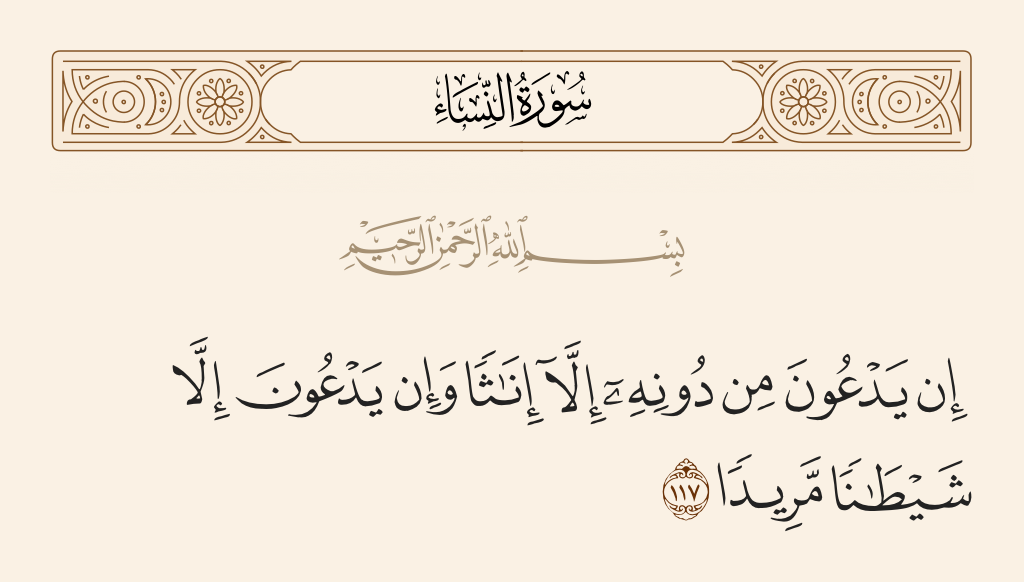 سُورَةُ النِّسَاءِ
بِسْمِ ٱللَّهِ ٱلرَّحْمَٰنِ ٱلرَّحِيمِ
إِن يَدْعُونَ مِن دُونِهِۦٓ إِلَّآ إِنَٰثًا وَإِن يَدْعُونَ إِلَّا
شَيْطَٰنًا مَّرِيدًا ١١٧